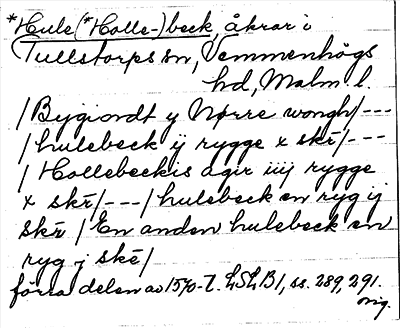 *Hule (*Holle-)beck, åkrar i
Tullstorps sn, Vemmenhögs
hd, Malm. l.
/Bygiordt y Nørre wongh/---
/hulebeck ij rygge x skr̄/---
/Hollebeckis agir iiij rygge
x skr̄/---/hulebeck en ryg ij
skr̄/En anden hulebeck en
ryg j skē/
förra delen av 1570-t. LSLB1, ss. 289, 291.
orig.